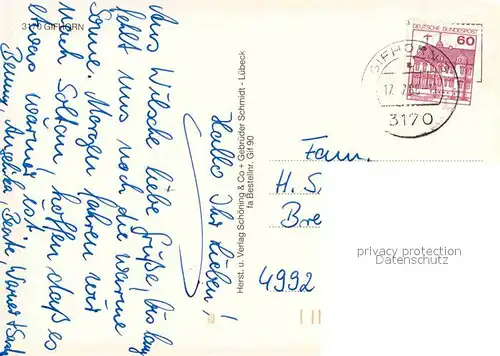 3170 GIFHORN
Hallo Ihr Lieben!
Aus Wilsche liebe Grüße, bis lang
fehlt uns noch die warme
Sonne. Morgen fahren wir
nach Soltau, hoffen daß es
etwas wärmer ist.
Benny, Angelika, Beate, Werner +
Herst. u. Verlag Schöning & Co + Gebrüder Schmidt - Lübeck
fa Bestellnr. Gif 90
DEUTSCHE BUNDESPOST
60
GIFHORN
17. 7.
3170
Fam.
H. S.
Bre
4992
privacy protection
Datenschutz